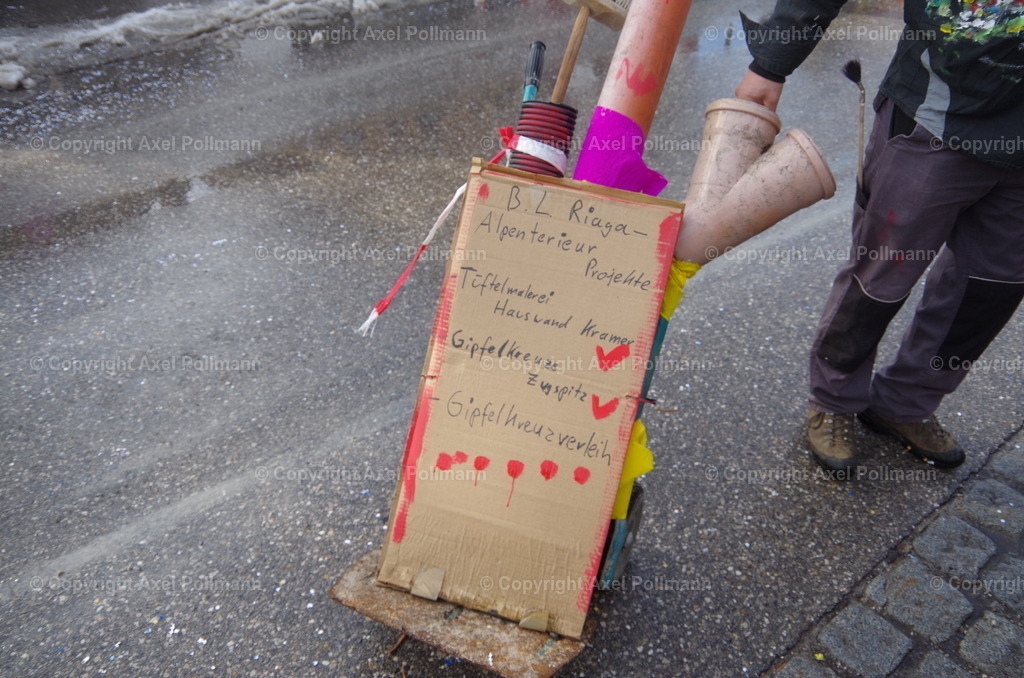 B.L Riaga-
Alpenterieur
Projekte
Tüftelmalerei
Hauswand Kramer
Gipfelkreuz
Zugspitz
- Gipfelkreuzverleih
© Copyright Axel Pollmann
© Copyright Axel Pollmann
© Copyright Axel Pollmann
© Copyright Axel Pollmann
© Copyright Axel Pollmann
© Copyright Axel Pollmann
© Copyright Axel Pollmann
© Copyright Axel Pollmann
© Copyright Axel Pollmann
© Copyright Axel Pollmann
© Copyright Axel Pollmann
© Copyright Axel Pollmann
© Copyright Axel Pollmann